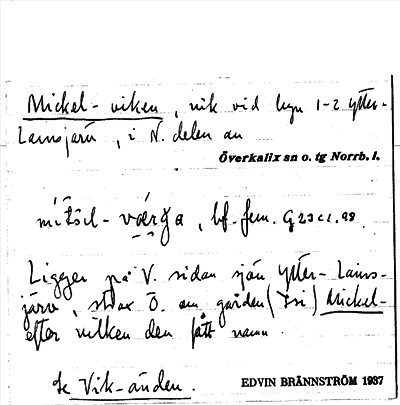 Mickel-viken, vik vid byn 1-2 Ytter-
Lainsjärv, i N. delen av
Överkalix sn o. tg Norrb. l.
bf. fem.
Ligger på V. sidan sjön Ytter-Lains-
järv, strax Ö. om gården Mickel-
efter vilken den fått namn.
Se Vik-änden.
EDVIN BRÄNNSTRÖM 1937